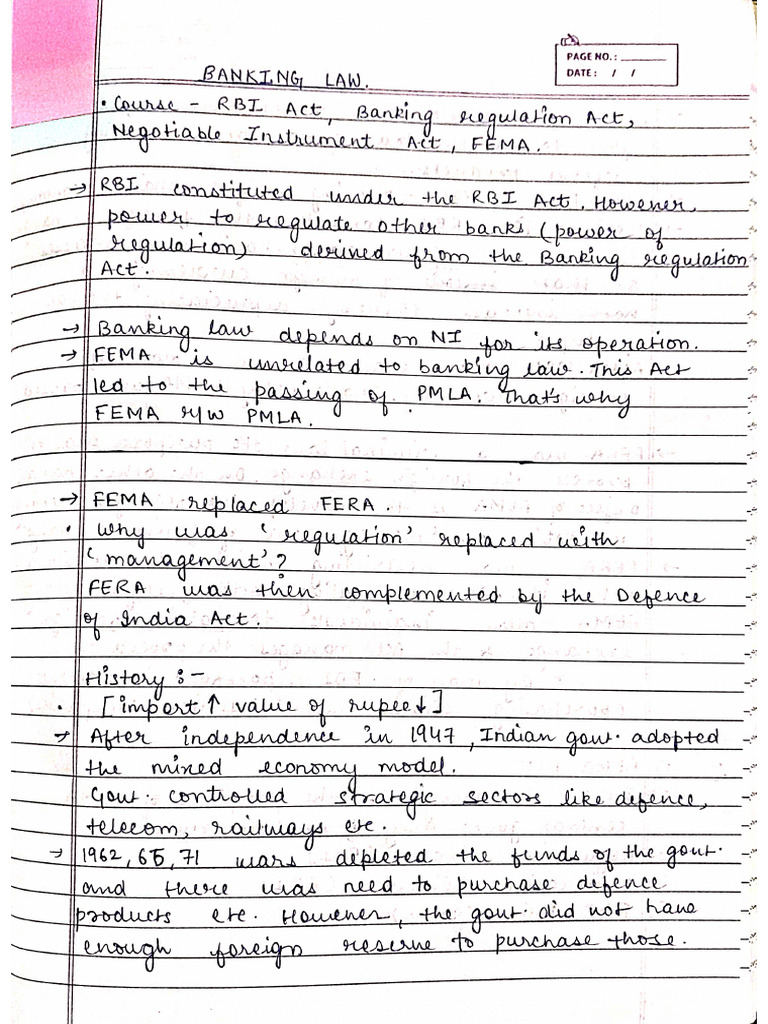 PAGE NO.:
DATE: / /
BANKING LAW.
• Course - RBI Act, Banking regulation Act,
Negotiable Instrument Act, FEMA.
→ RBI constituted under the RBI Act. However,
power to regulate other banks (power of
regulation) derived from the Banking regulation
Act.
→ Banking law depends on NI for its operation.
→ FEMA is unrelated to banking law. This Act
led to the passing of PMLA. That's why
FEMA r/w PMLA.
→ FEMA replaced FERA.
• Why was 'regulation' replaced with
'management'?
FERA was then complemented by the Defence
of India Act.
History :-
• [import ↑ value of rupee ↓]
→ After independence in 1947, Indian govt. adopted
the mixed economy model.
Govt. controlled strategic sectors like defence,
telecom, railways etc.
→ 1962, 65, 71 wars depleted the funds of the govt.
and there was need to purchase defence
products etc. However, the govt. did not have
enough foreign reserve to purchase those.